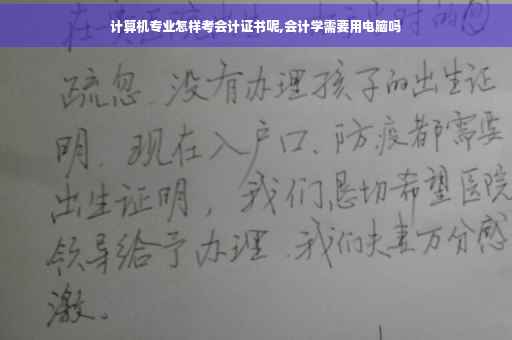 计算机专业怎样考会计证书呢,会计学需要用电脑吗
疏忽.没有办理孩子的出生证
明.现在入户口、防疫都需要
出生证明,我们恳切希望医院
领导给予办理.我们夫妻万分感
激。